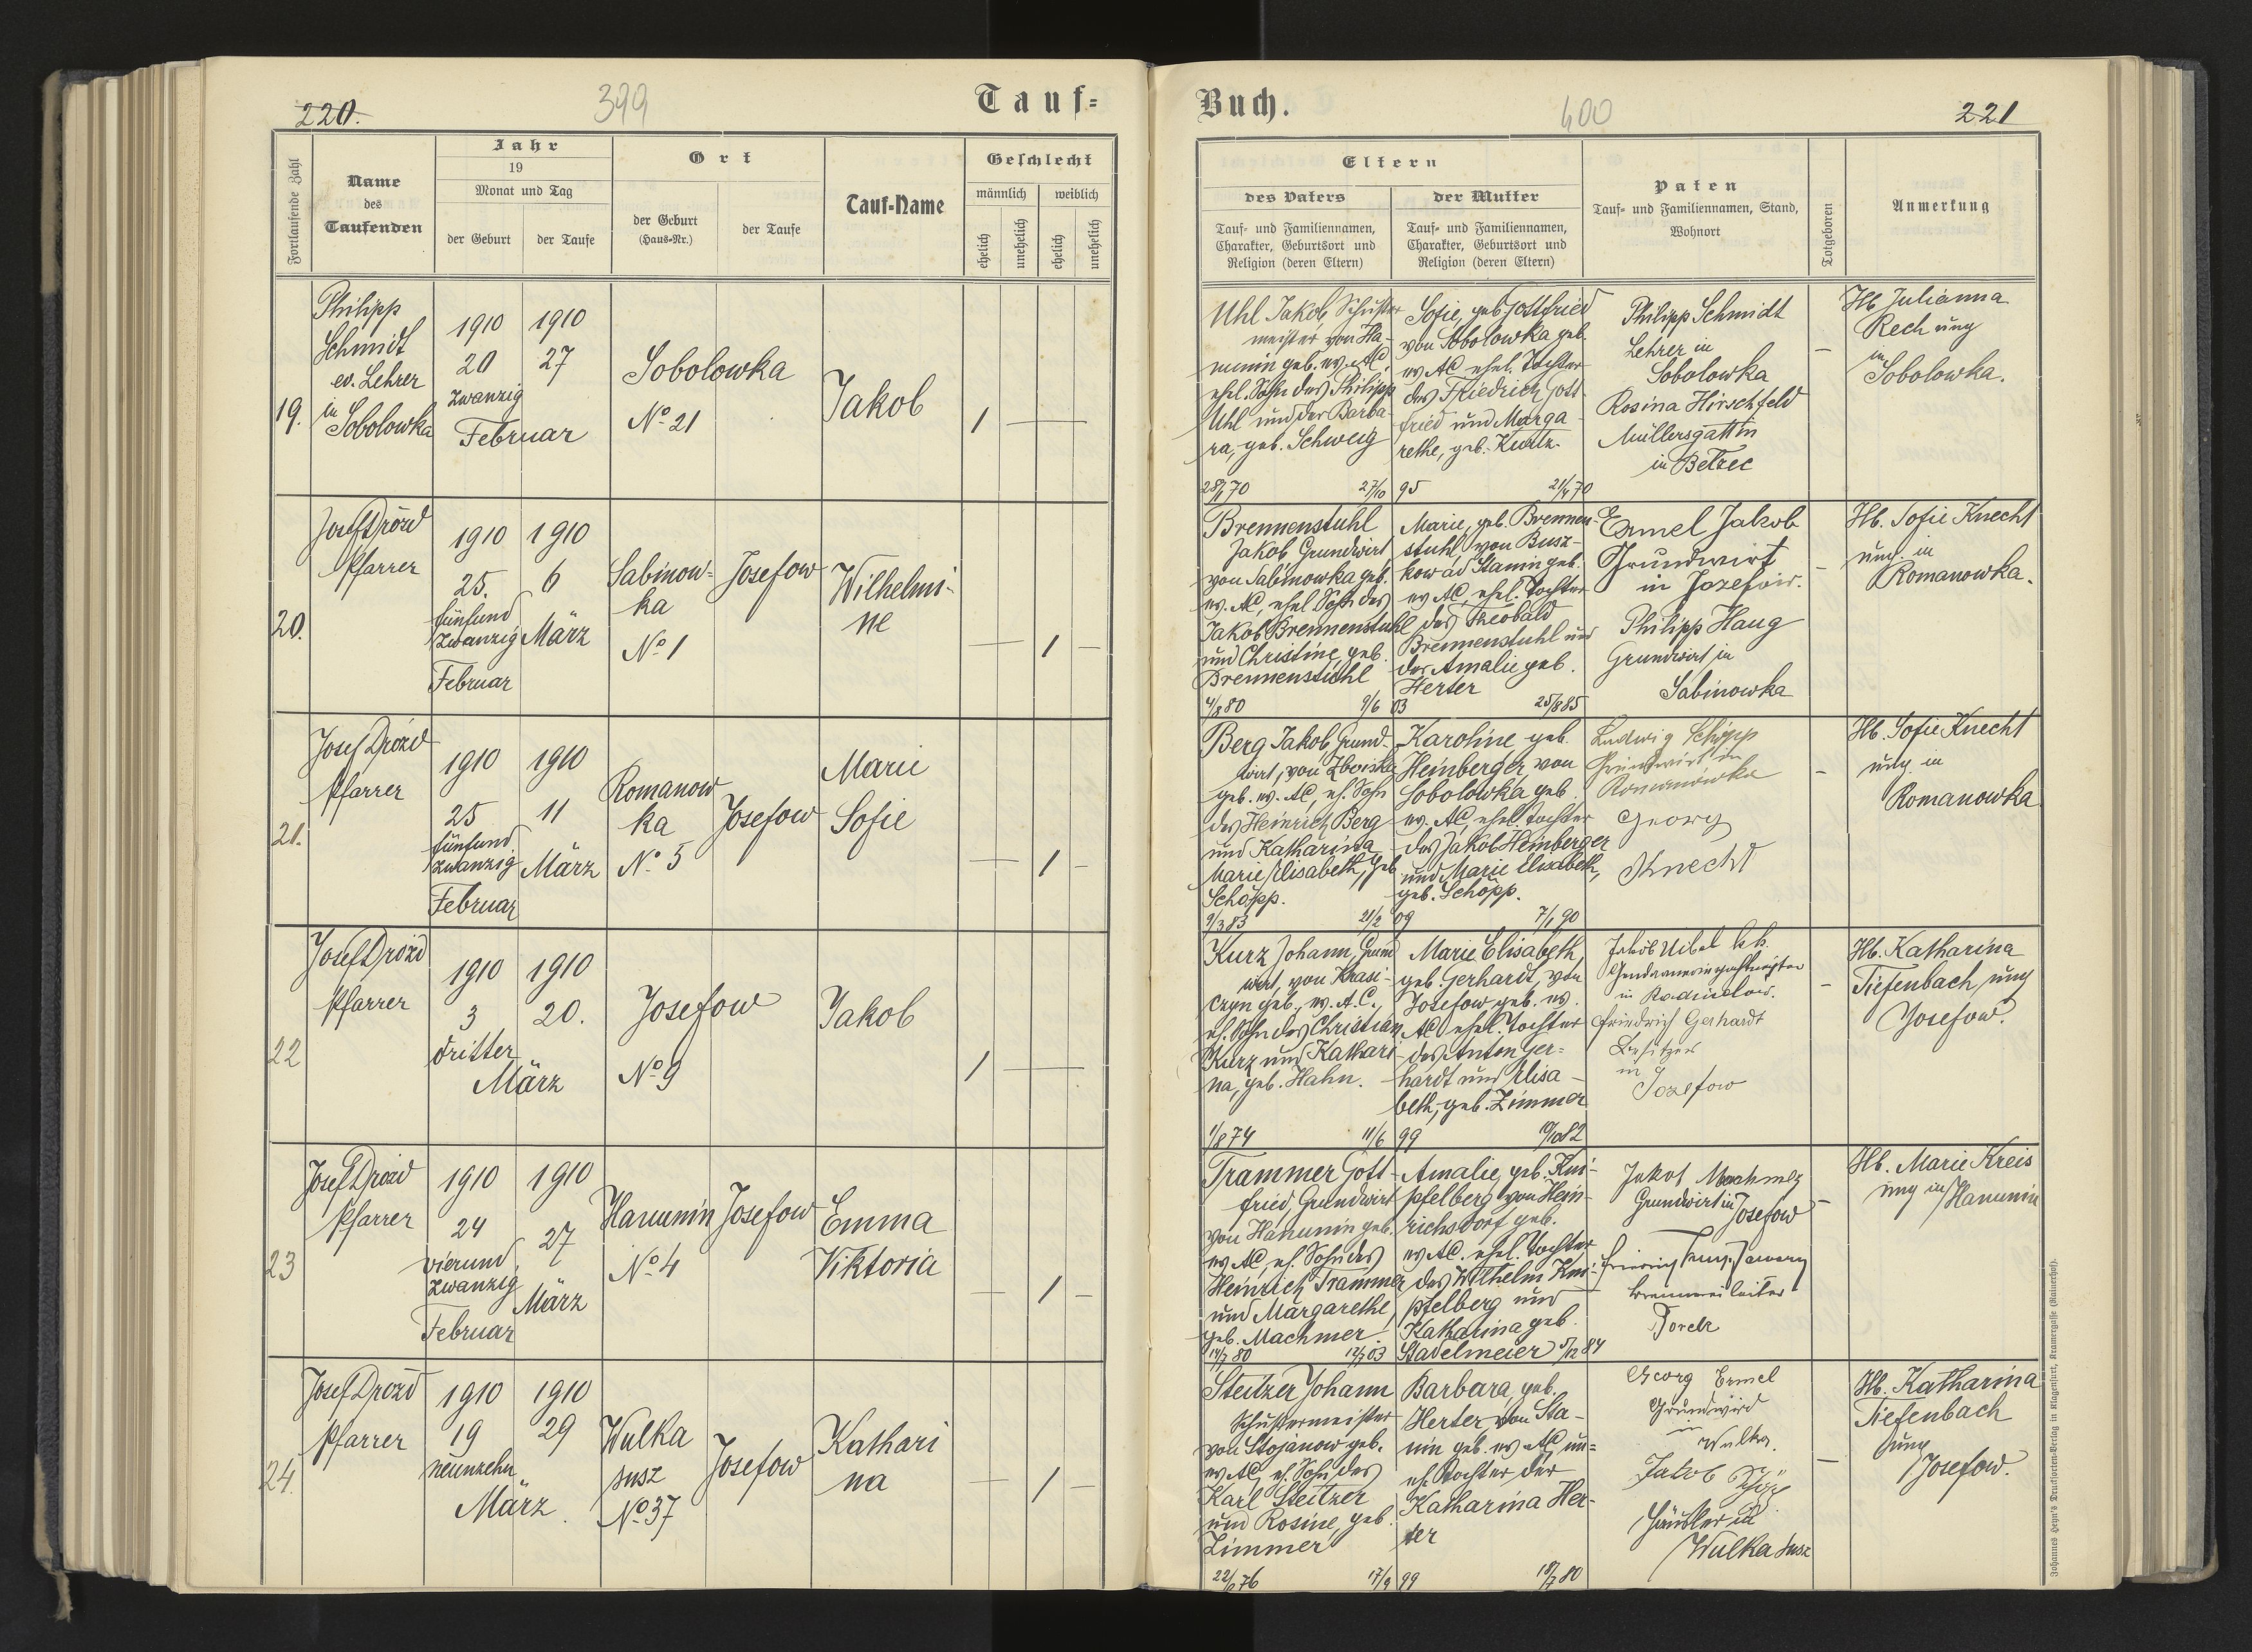 220.
399
Tauf=
Fortlaufende Zahl
Name
des
Taufenden
Jahr
19
Monat und Tag
der Geburt
der Taufe
Ort
der Geburt
(Haus=Nr.)
der Taufe
Tauf=Name
Geschlecht
männlich
weiblich
ehelich
unehelich
ehelich
unehelich
19.
Philipp
Schmidt
ev. Lehrer
in
Sobolowka
1910
20
zwanzig
1910
27
Februar
Sobolowka
No 21
Jakob
1
20.
Josef Drózd
Pfarrer
1910
25.
fünfund
zwanzig
Februar
1910
6
März
Sabinow=
ka
No 1
Josefow
Wilhelmi-
ne
1
21.
Josef Drózd
Pfarrer
1910
25
fünfund
zwanzig
Februar
1910
11
März
Romanow
ka
No 5
Josefow
Marie
Sofie
1
22
Josef Drózd
Pfarrer
1910
3
dritter
1910
20.
März
Josefow
No 9
Jakob
1
23
Josef Drózd
Pfarrer
1910
24
vierund
zwanzig
Februar
1910
27
März
Hanunin
No 4
Josefow
Emma
Viktoria
1
24.
Josef Drózd
Pfarrer
1910
19
neunzehn
1910
29
März
Wulka
susz
No 37
Josefow
Kathari
na
1
Buch.
400
221
Eltern
des Vaters
Tauf= und Familiennamen,
Charakter, Geburtsort und
Religion (deren Eltern)
der Mutter
Tauf= und Familiennamen,
Charakter, Geburtsort und
Religion (deren Eltern)
Paten
Tauf= und Familiennamen, Stand,
Wohnort
Totgeboren
Anmerkung
Uhl Jakob, Schuster
meister von Ha-
nunin geb. ev. AC,
ehel. Sohn des Philipp
Uhl und der Barba-
ra, geb. Schweig
28/1 70
27/10 95
Sofie, geb. Gottfried
von Sobolowka geb.
ev AC ehel. Tochter
des Friedrich Gott-
fried und Marga-
rethe, geb. Kurtz.
21/4 70
Philipp Schmidt
Lehrer in
Sobolowka
Rosina Hirschfeld
Müllersgattin
in Betzec
Hb. Julianna
Rech ung
in
Sobolowka.
Brennenstuhl
Jakob Grundwirt
von Sabinowka geb.
ev. AC, ehel. Sohn des
Jakob Brennenstuhl
und Christine, geb.
Brennenstuhl
4/8 80
9/6 03
Marie, geb. Brennen-
stuhl von Busz-
kow ad Stanin geb.
ev AC, ehel. Tochter
des Theobald
Brennenstuhl und
der Amalie geb.
Herter
25/8 85
Ermel Jakob
Grundwirt
in Jozefow.
Philipp Haug
Grundwirt in
Sabinowka
Hb. Sofie Knecht
ung. in
Romanowka.
Berg Jakob, Grund-
wirt, von Zboiska
geb. ev. AC, eh. Sohn
des Heinrich Berg
und Katharina
Marie Elisabeth, geb
Schöpp.
9/3 83
21/2 09
Karoline geb.
Heinberger von
Sobolowka geb.
ev. AC, ehel. Tochter
des Jakob Heinberger
und Marie Elisabeth,
geb. Schöpp.
7/1 90
Ludwig Schöpp
Grundwirt in
Romanowka
Georg
Knecht
Hb. Sofie Knecht
ung. in
Romanowka
Kurz Johann, Grund
wirt, von Krasi-
czyn geb., ev. A.C.,
eh. Sohn des Christian
Kurz und Kathari-
na, geb. Hahn.
1/8 74
11/6 99
Marie Elisabeth,
geb. Gerhardt, von
Josefow geb. ev.
AC ehel. Tochter
des Anton Ger=
hardt und Elisa-
beth, geb. Zimmer
19/10 82
Jakob Uibel kk.
Gendarmeriewachtmeister
in
Friedrich Gerhardt
Besitzer
in
Jozefow
Hb. Katharina
Tiefenbach ung
Josefow.
Trammer Gott-
fried, Grundwirt
von Hanunin geb.
ev AC, eh. Sohn des
Heinrich Trammer
und Margarethe,
geb. Machmer.
14/7 80
12/7 03
Amalie, geb. Kni-
pfelberg von Hein-
richsdorf geb.
ev AC. ehel. Tochter
des Wilhelm Kni-
pfelberg und
Katharina geb.
Stadelmeier
5/12 84
Jakob Machmer
Grundwirt in
Josefow
Brennereileiter
Hb. Marie Kreis
ung in
Hanunin
Steitzer Johann
Schustermeister
von Stojanow geb.
ev AC, eh. Sohn des
Karl Steitzer
und Rosine, geb.
Zimmer
22/6 76
17/9 99
Barbara, geb.
Herter von Sta-
nin geb. ev AC, un=
eh. Tochter der
Katharina Her-
ter
18/7 80
Georg Ermel
Grundwird
in
Wulka.
Jakob
Häusler in
Wulka susz
Hb. Katharina
Tiefenbach
ung
Josefow.
Johannes Heyn's Drucksorten=Verlag in Klagenfurt, Kramergasse (Raunerhof).